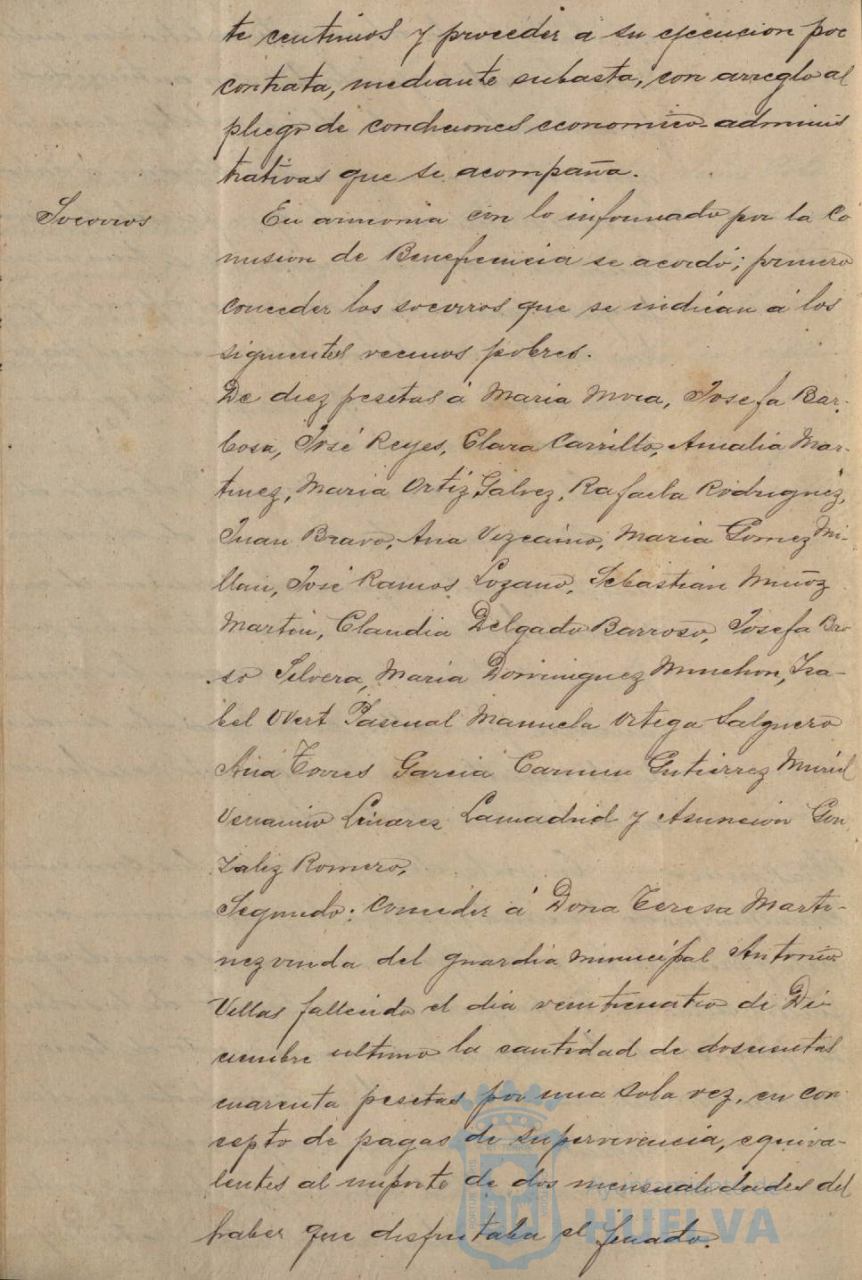 te centimos y proceder a su ejecucion por
contrata, mediante subasta, con arreglo al
pliego de condiciones economico-adminis
trativas que se acompaña.
Socorros
En armonia con lo informado por la Co
mision de Beneficencia se acordó; primero
conceder los socorros que se indican á los
siguientes vecinos pobres.
De diez pesetas á Maria Mora, Josefa Bar-
bosa, José Reyes, Clara Carrillo, Amalia Mar-
tinez, Maria Ortiz Galvez, Rafaela Rodriguez,
Juan Bravo, Ana Vizcaino, Maria Gomez Mi-
llan, José Ramos Lozano, Sebastián Muñoz
Martin, Claudia Delgado Barroso, Josefa Bro
so Silvera, Maria Dominiguez Minchon, Isa-
bel Wert Pascual Manuela Ortega Salguero
Ana Torres Garcia Carmen Gutierrez Muriel
Linares Lamadrid y Asuncion Gon
zalez Romero,
Segundo: Conceder á Dona Teresa Marti-
nez viuda del guardia municipal Antonio
Villas fallecido el dia veinticuatro de Di
ciembre ultimo la cantidad de doscientas
cuarenta pesetas por una sola vez, en con
cepto de pagas de supervivencia, equiva-
lentes al importe de dos mensualidades del
haber que disfrutaba el finado.
HUELVA